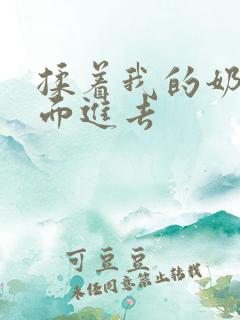 揉着我的奶
而进去
可豆豆
未经同意禁止转载